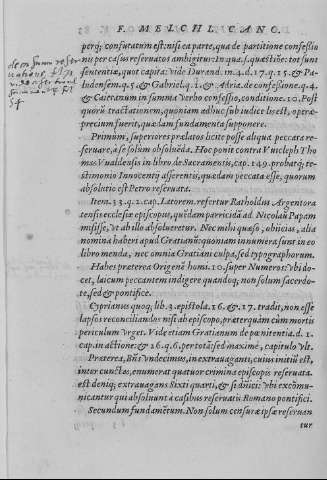 F. MELCH. CANO.
perq; confutatum est: nisi ea parte, qua de partitione confessio
nis per casus reseruatos ambigitur: In qua. s. quæstiõe: tot sunt
sententia, quot capita: vide Durand. in. 4. d. 17. q. 15. & Pa-
ludensem. q. 5. & Gabriel. q. 1. & Adria. de confessione. q. 4.
& Caietanum in summa verbo confessio, conditione. 10. Post
quorũ tractationem, quoniam adhuc sub iudice lis est, operæ-
precium fuerit, quædam fundamenta supponere.
Primùm, superiores prælatos licite posse aliqua peccata re-
seruare, à se solùm absoluẽda. Hoc ponit contra Vuicleph Tho
mas Vualdensis in libro de Sacramentis, cap. 149. probatq; te-
stimonio Innocentij asserentis, quædam peccata esse, quorum
absolutio est Petro reseruata.
Item. 33. q. 2. cap. Latorem. refertur Ratholdus Argentora
tensis ecclesiæ episcopus, quẽdam parricidã ad Nicolaũ Papam
misisse, vt ab illo absolueretur. Nec mihi quæso, obijcias, alia
nomina haberi apud Gratianũ: quoniam innumera sunt in eo
libro menda, nec omnia Gratiani culpa, sed typographorum.
Habes præterea Origenẽ homi. 10. super Numeros: vbi do-
cet, laicum peccantem indigere quandoq; non solum sacerdo-
te, sed & pontifice.
Cyprianus quoq; lib. 3. epistola. 16. & 17. tradit, non esse
lapsos reconciliandos nisi ab episcopo, præterquàm cùm mortis
periculum vrget. Vide etiam Gratianum de pænitentia. d. 1.
cap. in actione: & 26. q. 6. per totã: sed maximè, capitulo vlt.
Præterea, Bñs vndecimus, in extrauaganti, cuius initiũ est,
inter cunctas, enumerat quatuor crimina episcopis reseruata.
est deniq; extrauagans Sixti quarti, & si dñici: vbi excõmu-
nicantur qui absoluunt à casibus reseruatis Romano pontifici.
Secundum fundamẽtum. Non solum censuræ ipsæ reseruan
tur